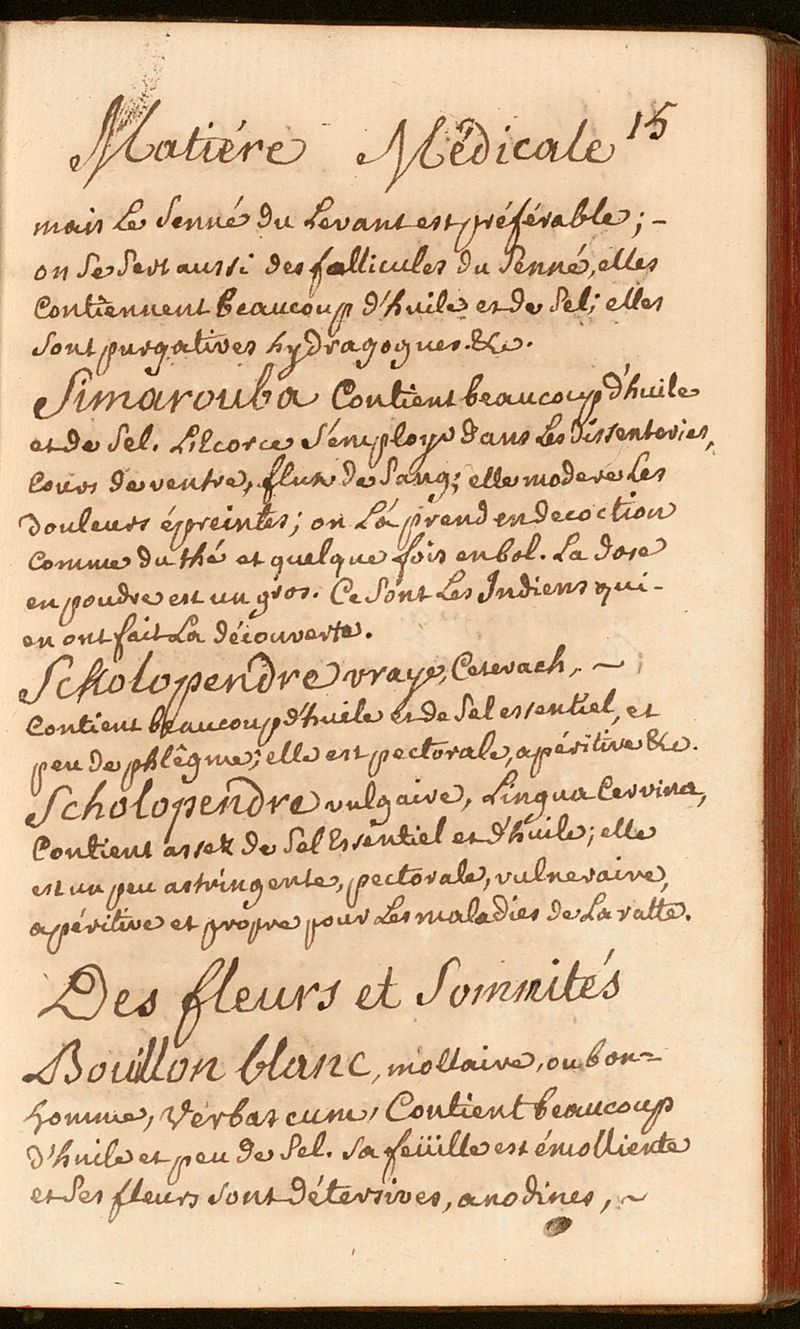 Matiére Médicale 15
mais Le Senné du Levant est préférable ; -
on Se Sert aussi des follicules du Senné, elles
Contiennent beaucoup d'huile et de Sel ; elles
Sont purgatives hydragogues. &c.
Simarouba Contient beaucoup d'huile
et de Sel. L'Ecorce S'employe dans Les dissenteries,
Cours de ventre, flux de Sang ; elle modere Les
douleurs épreintes ; on La prend en decoction
Comme du thé et quelque fois en bol. La dose
en poudre est un gros. Ce Sont Les Indiens qui -
en ont fait La découverte.
Scholopendre vraye, Ceterach, ~
Contient beaucoup d'huile et de Sel essentiel, et
peu de phlêgme ; elle est pectorale, apéritive &c.
Scholopendre vulgaire, Lingua Cervina,
Contient assez de Sel Essentiel et d'huile ; elle
est un peu astringente, pectorale, vulneraire,
apéritive et propre pour Les maladies de La ratte.
Des fleurs et Sommités
Bouillon blanc, moltaire, ou bon=
homme, Verbascum, Contient beaucoup
d'huile et peu de Sel. Sa feüille est émolliente
et Ses fleurs Sont détersives, anodines, ~